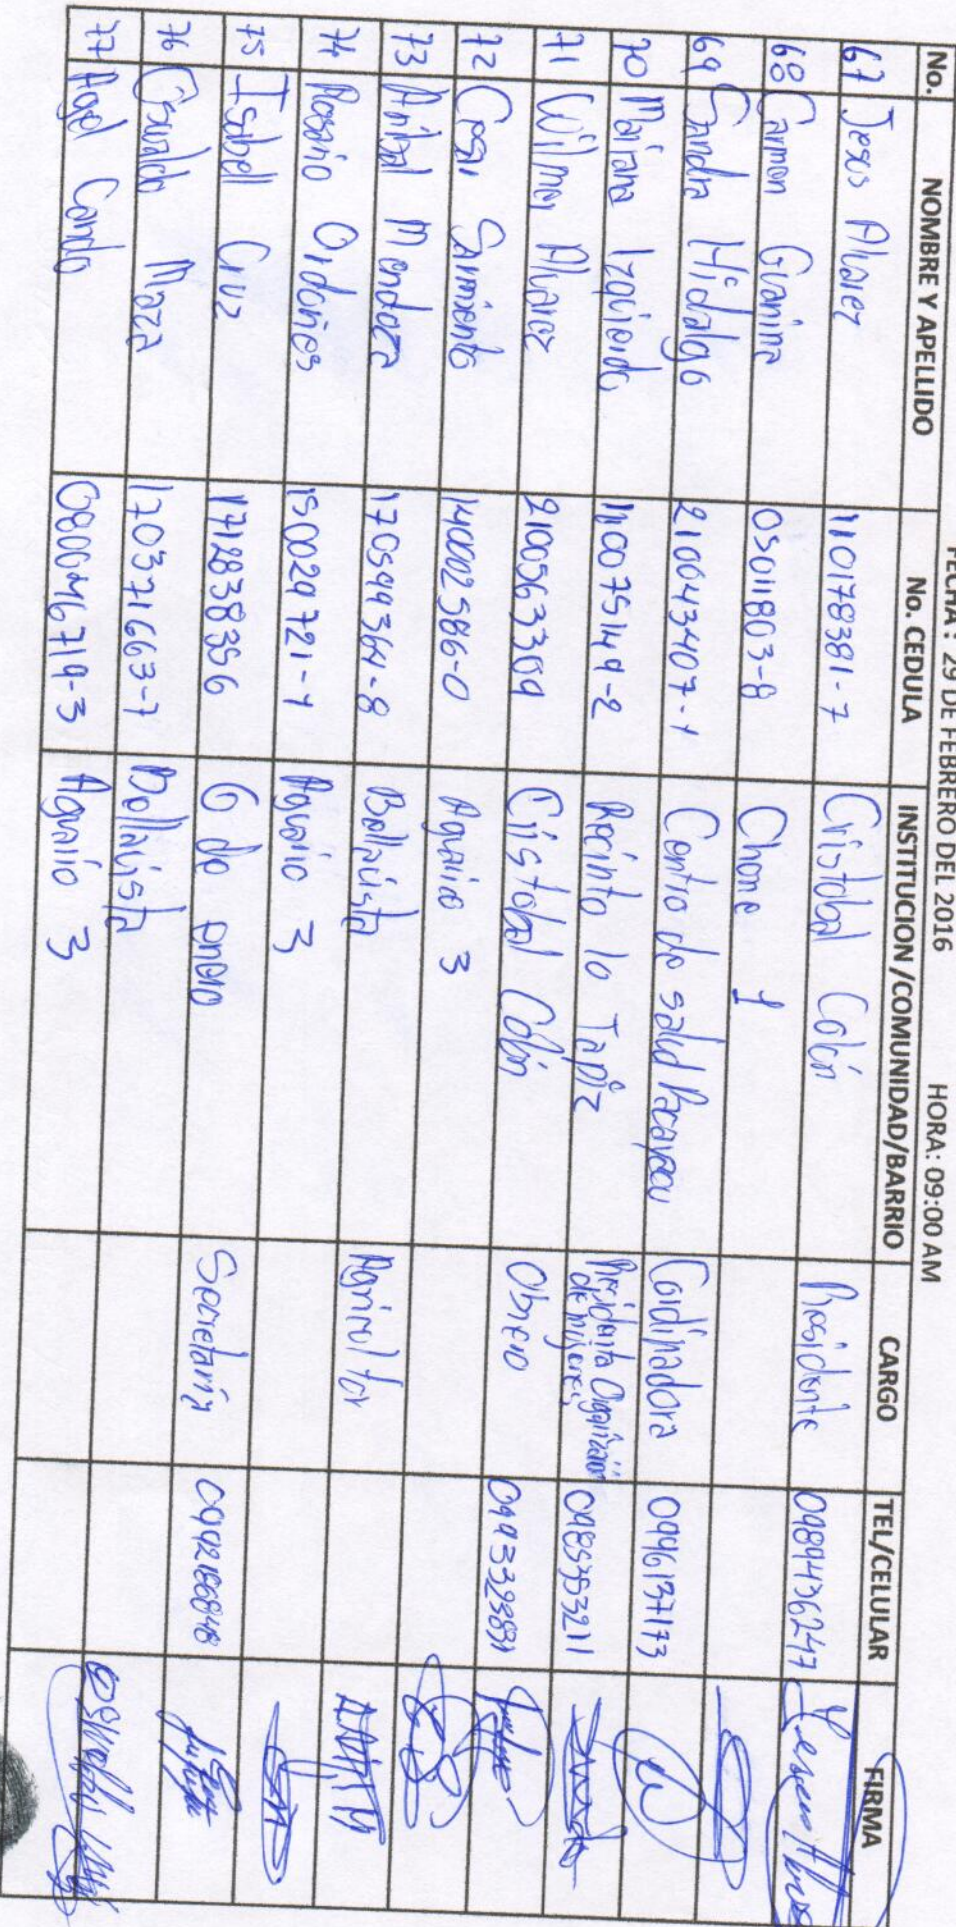 FECHA : 29 DE FEBRERO DEL 2016 HORA: 09:00 AM
No. NOMBRE Y APELLIDO No. CEDULA INSTITUCION/COMUNIDAD/BARRIO CARGO TEL/CELULAR FIRMA
67 Jesus Alvarez 110178381-7 Cristobal Colón Presidente 0989436247
68 Carmen Guanina 05011803-8 Chone 1
69 Sandra Hidalgo 210043407-1 Centro de salud Pacayacu Cordinadora 0996137173
70 Mariana Izquierdo 110075149-2 Recinto lo Tapiz Presidenta Organización de mujeres 0985353211
71 Wilmer Alvarez 2100563309 Cristobal Colón Obrero 0993323831
72 Cesar Sarmiento 140002586-0 Aguario 3
73 Anibal Mendoza 170599364-8 Bellavista Agricultor
74 Rosario Ordoñes 150029721-1 Aguario 3
75 Isabell Cruz 1712838356 6 de enero Secretaria
76 Osvaldo Maza 170371663-7 Bellavista
77 Angel Condo 3 Aguario 3